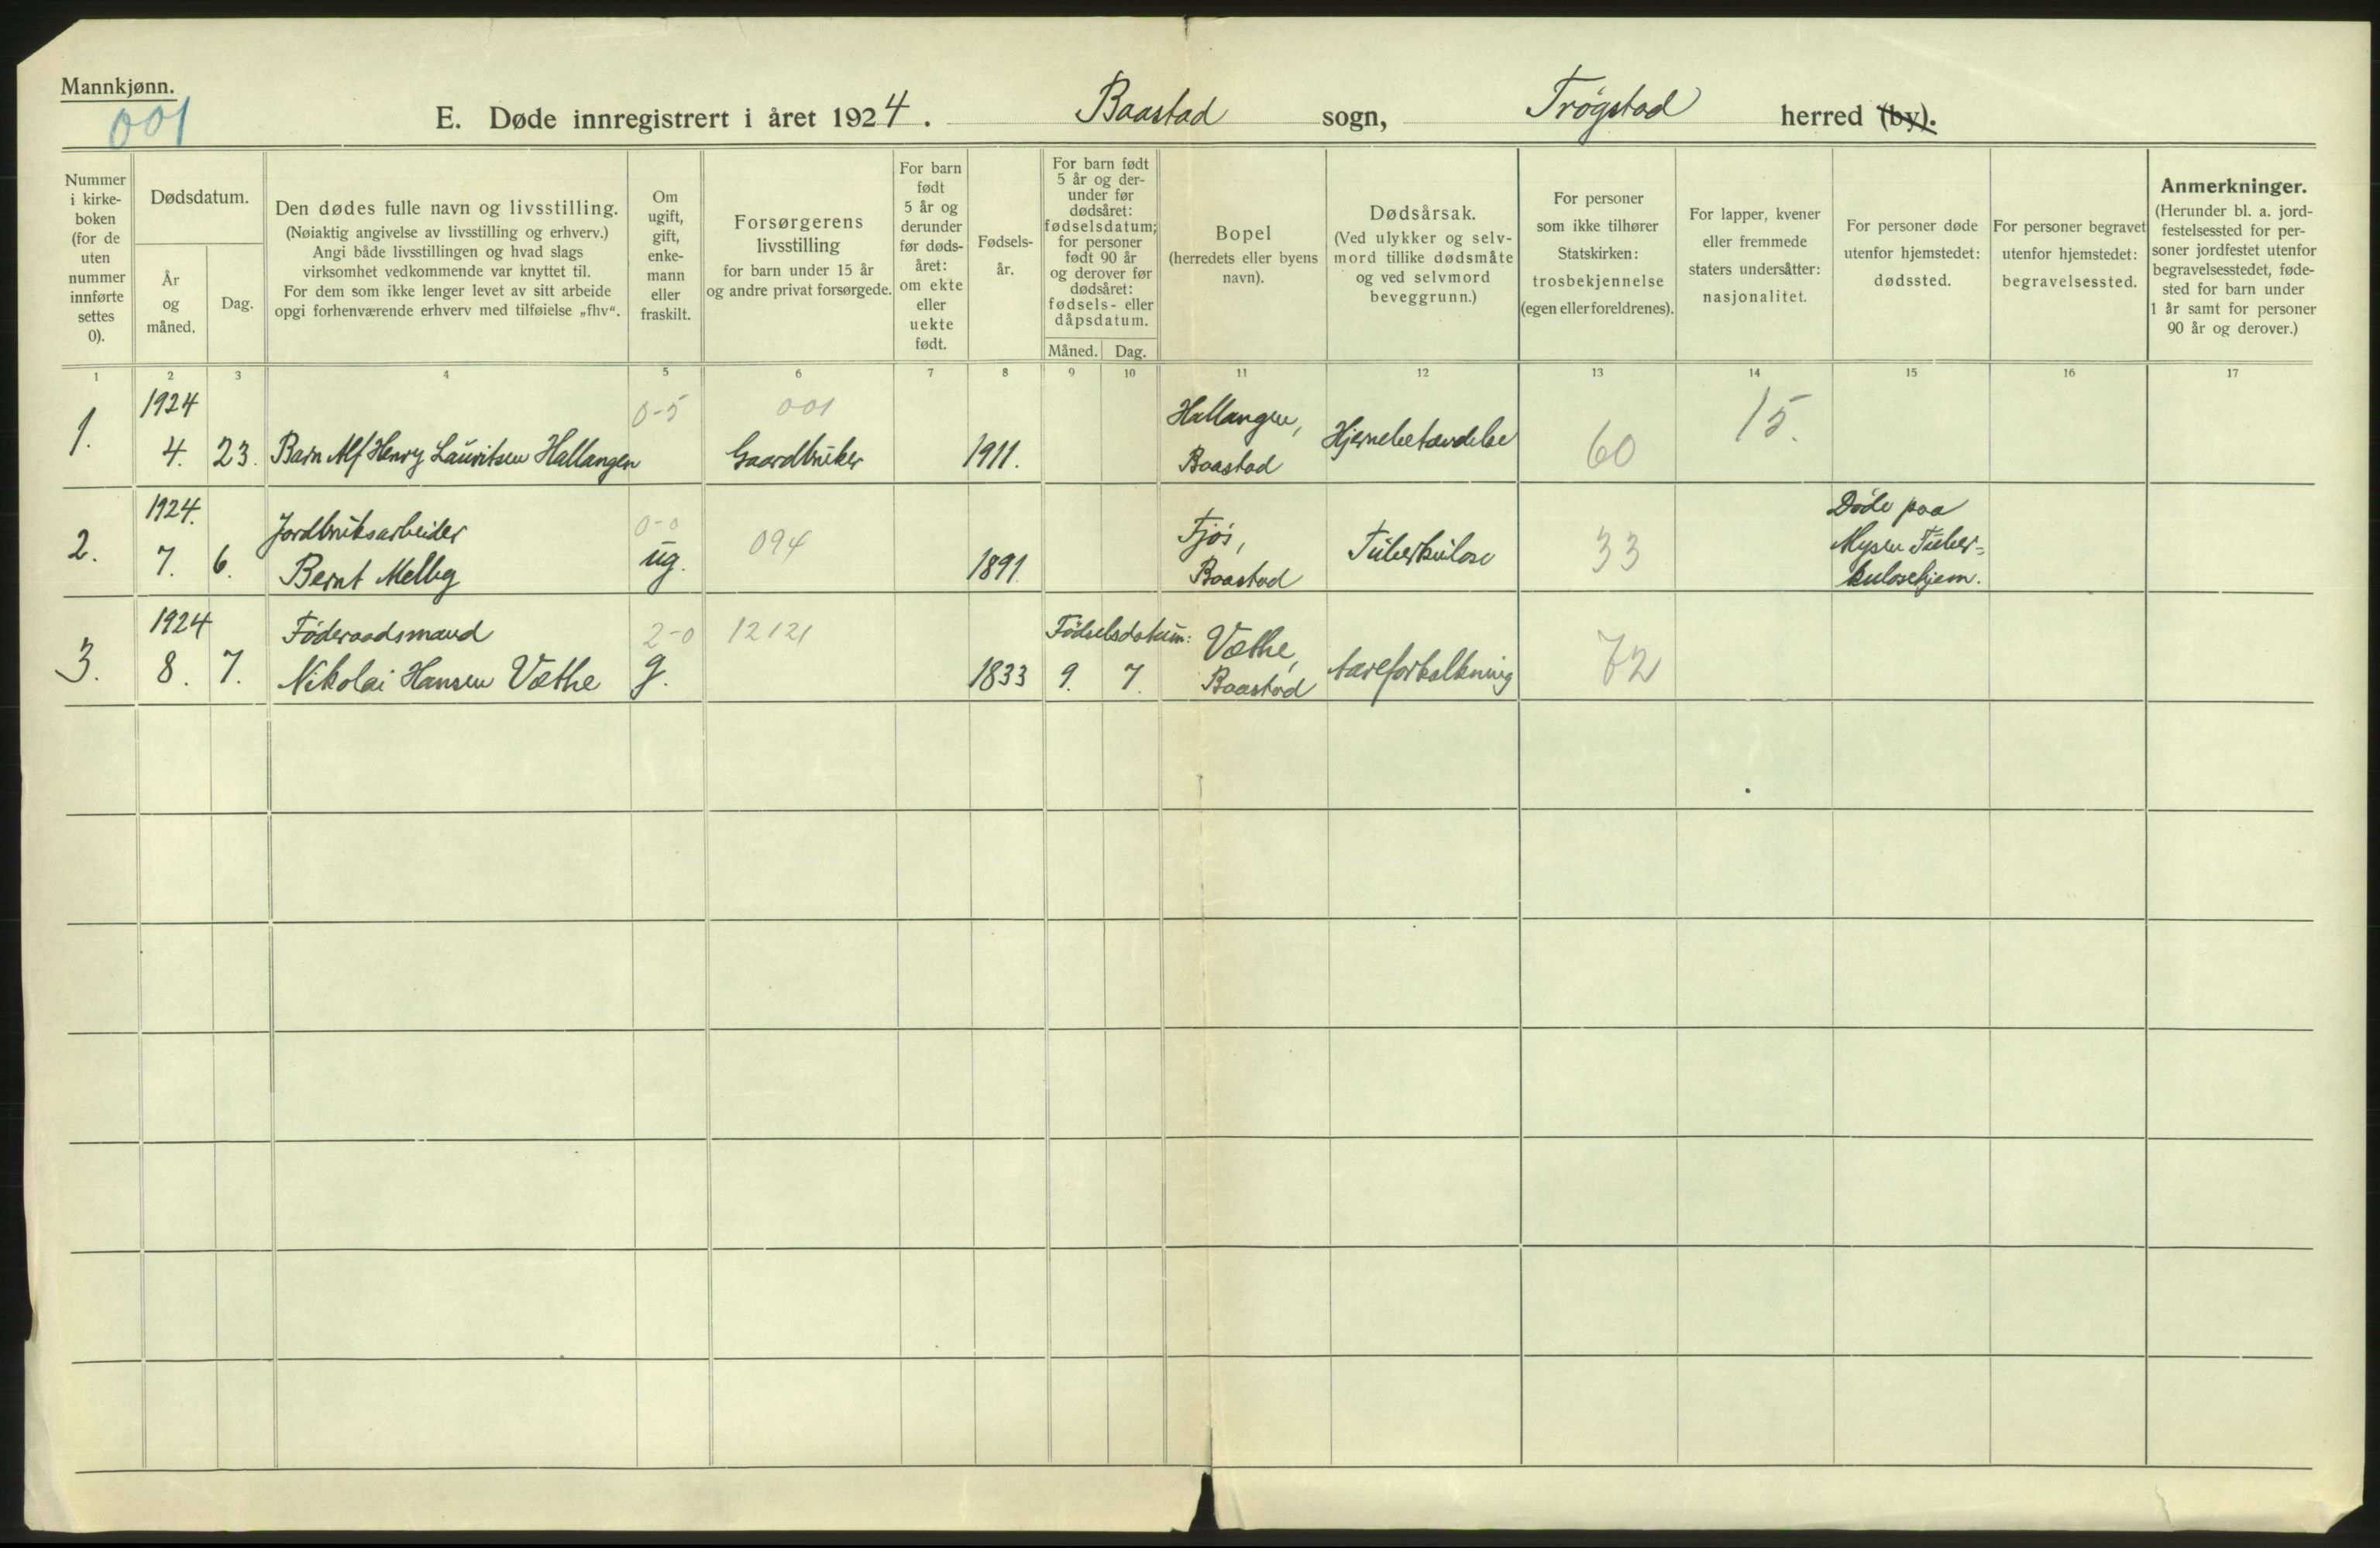 Mannkjønn.
001
E. Døde innregistrert i året 1924. Baastad sogn, Trøgstad herred (by).
Nummer
i kirke-
boken
(for de
uten
nummer
innførte
settes
0).
Dødsdatum.
År
og
måned.
Dag.
Den dødes fulle navn og livsstilling.
(Nøiaktig angivelse av livsstilling og erhverv.)
Angi både livsstillingen og hvad slags
virksomhet vedkommende var knyttet til.
For dem som ikke lenger levet av sitt arbeide
opgi forhenværende erhverv med tilføielse „fhv“.
Om
ugift,
gift,
enke-
mann
eller
fraskilt.
Forsørgerens
livsstilling
for barn under 15 år
og andre privat forsørgede.
For barn
født
5 år og
derunder
før døds-
året:
om ekte
eller
uekte
født.
Fødsels-
år.
For barn født
5 år og der-
under før
dødsåret:
fødselsdatum;
for personer
født 90 år
og derover før
dødsåret:
fødsels- eller
dåpsdatum.
Måned. Dag.
Bopel
(herredets eller byens
navn).
Dødsårsak.
(Ved ulykker og selv-
mord tillike dødsmåte
og ved selvmord
beveggrunn.)
For personer
som ikke tilhører
Statskirken:
trosbekjennelse
(egen eller foreldrenes).
For lapper, kvener
eller fremmede
staters undersåtter:
nasjonalitet.
For personer døde
utenfor hjemstedet:
dødssted.
For personer begravet
utenfor hjemstedet:
begravelsessted.
Anmerkninger.
(Herunder bl. a. jord-
festelsessted for per-
soner jordfestet utenfor
begravelsesstedet, føde-
sted for barn under
1 år samt for personer
90 år og derover.)
1 2 3 4 5 6 7 8 9 10 11 12 13 14 15 16 17
1924 0-5 001 Hallangen, 15.
1. 4. 23. Barn Alf Henry Lauritsen Hallangen Gaardbruker 1911. Baastad Hjernebetændelse 60
1924. Jordbruksarbeider 0-0 Fjøs, Døde paa
2. 7. 6. Bernt Melby ug. 094 1891. Baastad Tuberkulose 33 Mysen Tuber=
kulosehjem.
1924 Føderaadsmand 2-0 12121 Fødselsdatum: Væthe,
3. 8. 7. Nikolai Hansen Væthe g. 1833 9. 7. Baastad Aareforkalkning 72